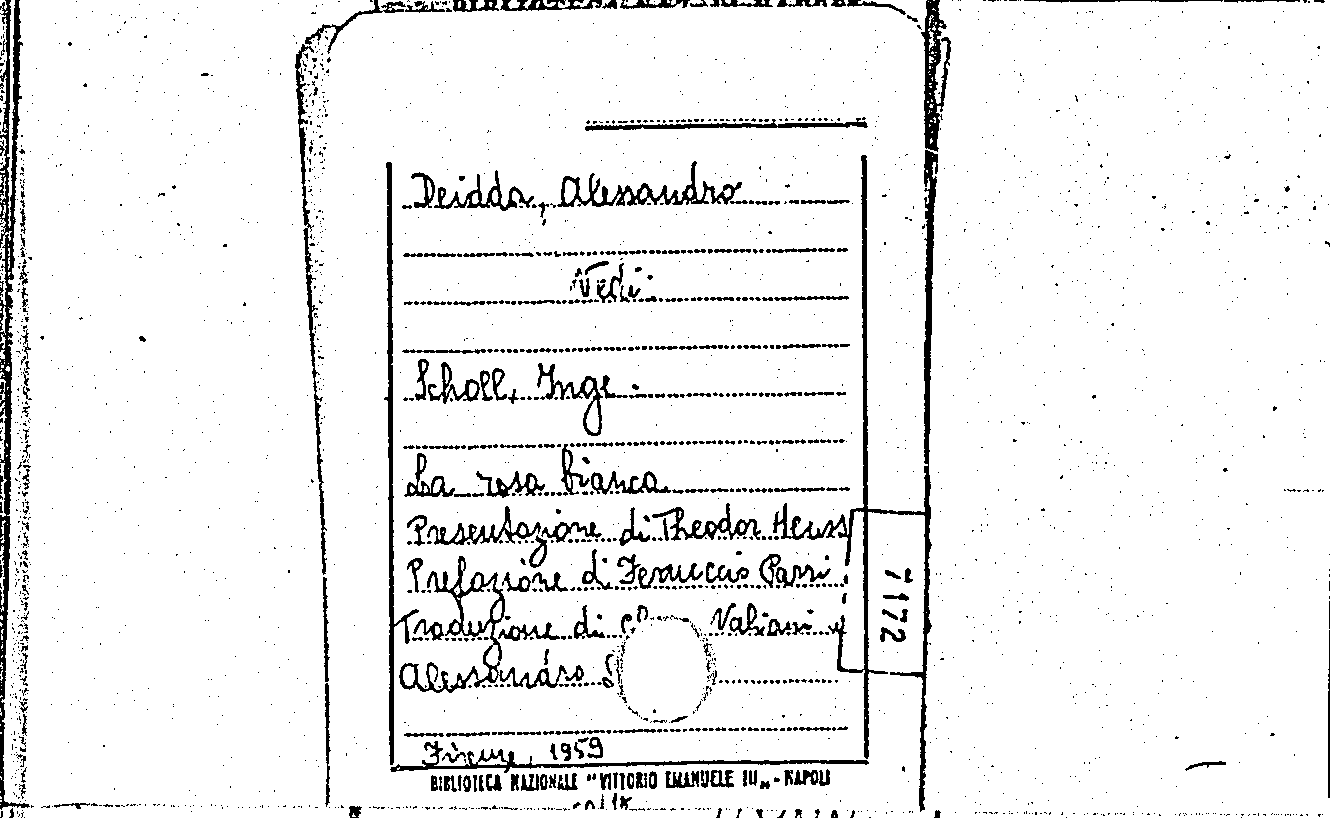 Deidda, Alessandro
Vedi:
Scholl, Inge.
La rosa bianca
Presentazione di Theodor Heuss
Prefazione di Ferruccio Parri
Traduzione di Valiani e
Alessandro
Firenze, 1959
7172
BIBLIOTECA NAZIONALE "VITTORIO EMANUELE III" - NAPOLI